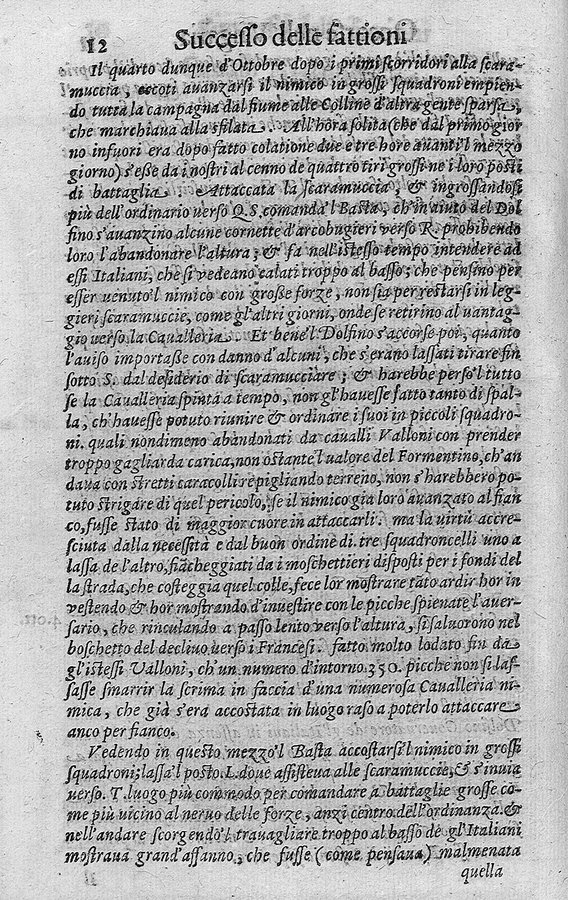 12 Successo delle fattioni
Il quarto dunque d'Ottobre dopo i primi scorridori alla scara-
muccia, eccoti auanzarsi il nimico in grossi squadroni empien-
do tutta la campagna dal fiume alle Colline d'altra gente sparsa,
che marchiaua alla sfilata. All'hora solita (che dal primo gior
no infuori era dopo fatto colatione due e tre hore auanti'l mezzo
giorno) s'esse da i nostri al cenno de quattro tiri grossi ne i loro posti
di battaglia. Attaccata la scaramuccia, & ingrossandosi
più dell'ordinario verso Q S. comanda'l Basta, ch'in aiuto del Dol
fino s'auanzino alcune cornette d'arcobugieri verso R. prohibendo
loro l'abandonare l'altura; & fa nell'istesso tempo intendere ad
essi Italiani, che si vedeano calati troppo al basso; che pensino per
esser uenuto'l nimico con grosse forze, non sia per restarsi in leg-
gieri scaramuccie, come gl'altri giorni, onde se retirino al uantag-
gio verso la Caualleria. Et bene'l Dolfino s'accorse poi, quanto
l'auiso importasse con danno d'alcuni, che s'erano lassati tirare fin
sotto S. dal desiderio di scaramucciare; & harebbe perso'l tutto
se la Caualleria spinta a tempo, non gl'hauesse fatto tanto di spal-
la, ch'hauesse potuto riunire & ordinare i suoi in piccoli squadro-
ni. quali nondimeno abandonati da caualli Valloni con prender
troppo gagliarda carica, non ostante'l ualore del Formentino, ch'an
daua con stretti caracolli repigliando terreno, non s'harebbero po-
tuto strigare di quel pericolo, se il nimico gia loro auanzato al fian
co, fusse stato di maggior cuore in attaccarli. ma la uirtù accre-
sciuta dalla necessità e dal buon ordine di tre squadroncelli uno a
lassa de l'altro, fiacheggiati da i moschettieri disposti per i fondi del
la strada, che costeggia quel colle, fece lor mostrare tãto ardir hor in
vestendo & hor mostrando d'inuestire con le picche spienate l'auer-
sario, che rinculando a passo lento verso l'altura, si saluorono nel
boschetto del decliuo uerso i Francesi. fatto molto lodato fin da
gl'istessi Valloni, ch'un numero d'intorno 350. picche non si las-
sasse smarrir la scrima in faccia d'una numerosa Caualleria ni-
mica, che già s'era accostata in luogo raso a poterlo attaccare
anco per fianco.
Vedendo in questo mezzo'l Basta accostarsi'l nimico in grossi
squadroni; lassa'l posto. L. doue assisteua alle scaramuccie, & s'inuia
uerso. T. luogo più commodo per comandare a battaglie grosse co-
me più uicino al neruo delle forze, anzi centro dell'ordinanza. &
nell'andare scorgendo'l trauagliare troppo al basso de gl'Italiani
mostraua grand'affanno, che fusse (come pensaua) malmenata
quella